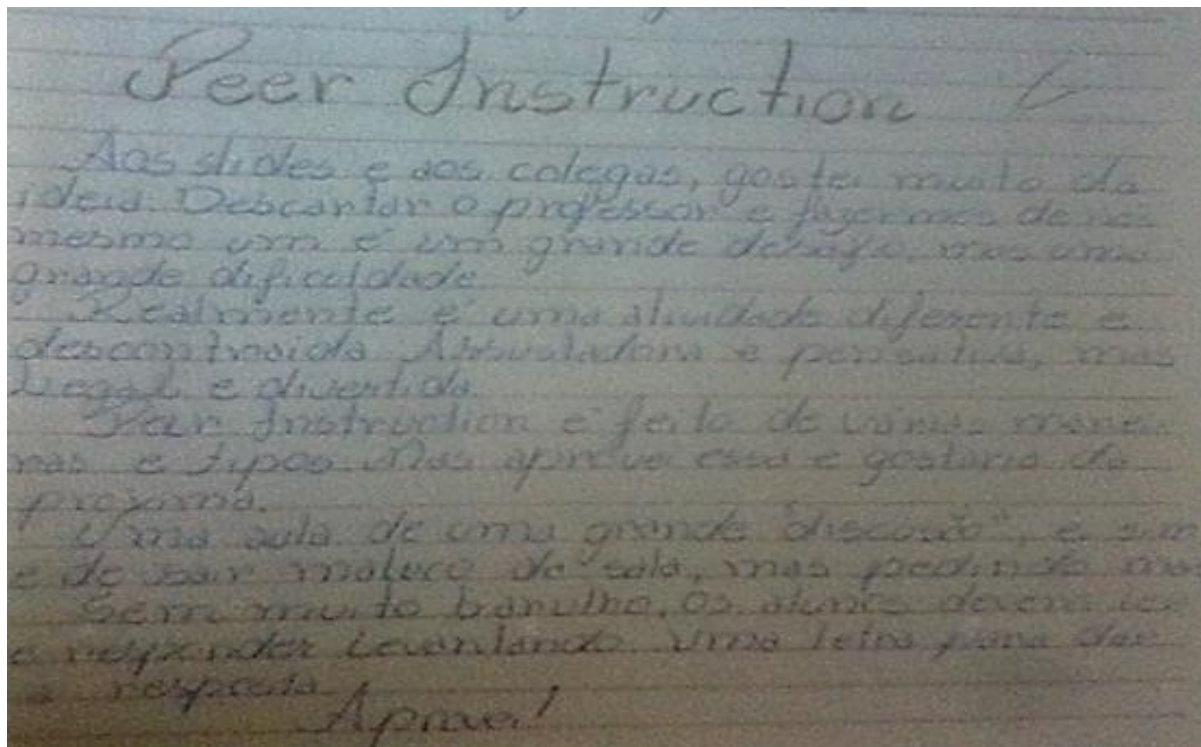 Peer Instruction
Aos slides e aos colegas, gostei muito da
ideia. Descartar o professor e fazermos de nós
mesmo um é um grande desafio, mas uma
grande dificuldade.
Realmente é uma atividade diferente e
descontraida. Assustadora e pensativa, mas
Legal e divertida.
Peer Instruction é feito de várias manei-
ras e tipos. Mas aprovo essa e gostaria da
proxima.
Uma aula de uma grande "discosão", e sim
é de sair maluco da sala, mas pedindo
Sem muito barulho, os alunos devem
e responder Levantando uma letra para dar
a resposta.
Aprovei!